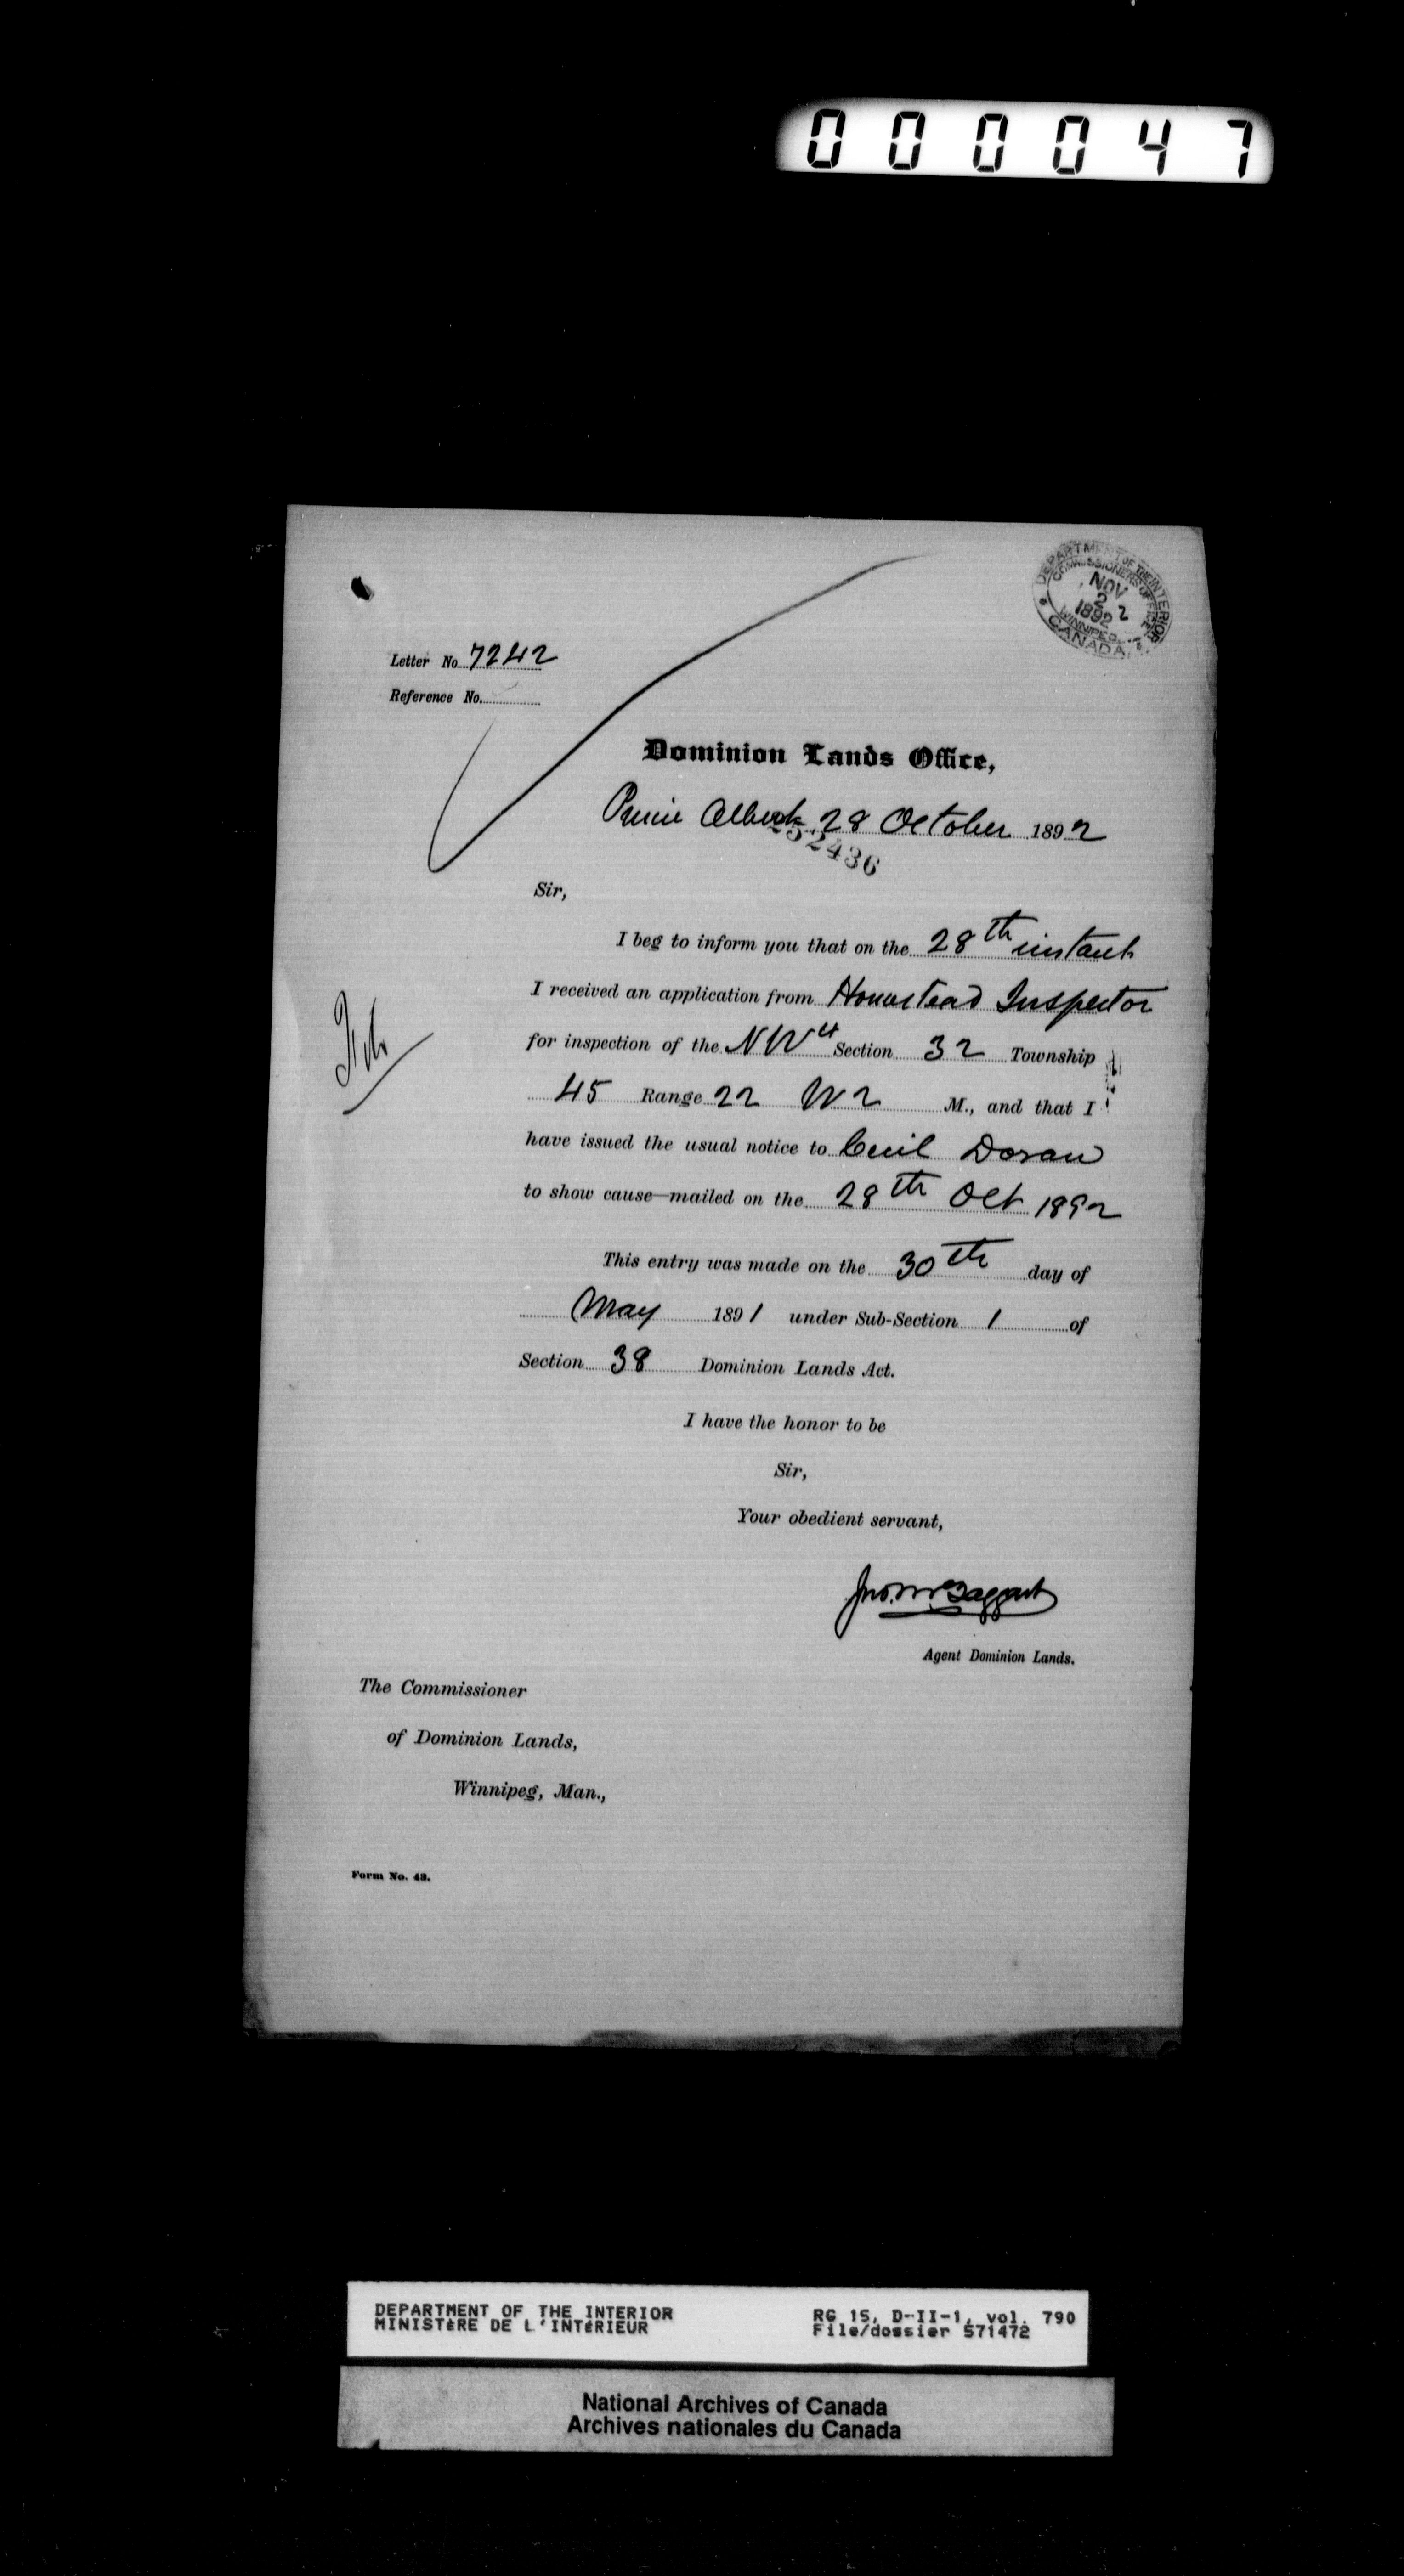 000047
DEPARTMENT OF THE INTERIOR
COMMISSIONERS OFFICE
NOV
2 2
1892
WINNIPEG
CANADA
Letter No. 7242
Reference No.
Dominion Lands Office,
Prince Albert 28 October 1892
252436
Sir,
I beg to inform you that on the 28th instant
I received an application from Homestead Inspector
for inspection of the NW 4 Section 32 Township
45 Range 22 W 2 M., and that I
have issued the usual notice to Cecil Doran
to show cause—mailed on the 28th Oct 1892
This entry was made on the 30th day of
May 1891 under Sub-Section 1 of
Section 38 Dominion Lands Act.
I have the honor to be
Sir,
Your obedient servant,
Jno. McTaggart
Agent Dominion Lands.
The Commissioner
of Dominion Lands,
Winnipeg, Man.,
Form No. 43.
DEPARTMENT OF THE INTERIOR
MINISTÈRE DE L'INTÉRIEUR
RG 15, D-II-1, vol. 790
File/dossier 571472
National Archives of Canada
Archives nationales du Canada